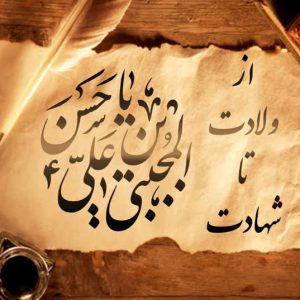 از
ولادت
تا
شهادت
یا حسن
بن علی
المجتبی